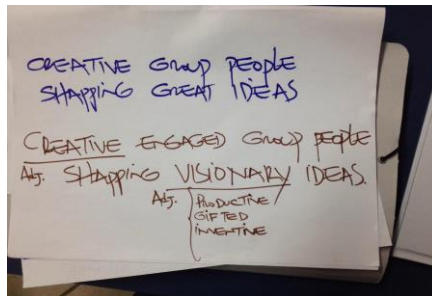 CREATIVE GROUP PEOPLE
SHAPPING GREAT IDEAS
CREATIVE ENGAGED GROUP PEOPLE
Adj. SHAPPING VISIONARY IDEAS.
Adj. PRODUCTIVE
GIFTED
INVENTIVE